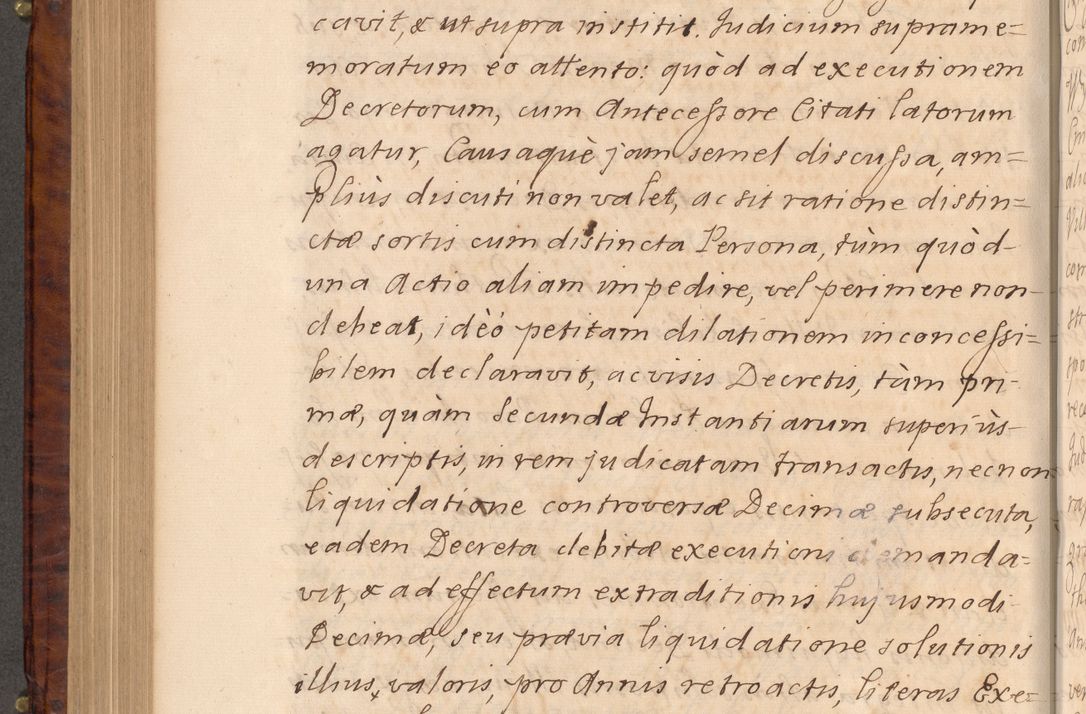 cavit, & ut supra institit. Judicium suprame=
moratum eo attento: quòd ad executionem
Decretorum, cum Antecessore Citati latorum
agatur, Causaquè jam semel discussa, am=
pliùs discuti non valet, ac sit ratione distin=
ctæ sortis cum distincta Persona, tùm quòd
una Actio aliam impedire, vel perimere non
debeat, idèó petitam dilationem inconcessi=
bilem declaravit, ac visis Decretis, tàm pri-
mæ, quàm Secundæ Instantiarum superiùs
descriptis, in rem judicatam transactis, necnon
liquidatione controversæ Decimæ subsecuta,
eadem Decreta debitæ executioni demanda=
vit, & ad effectum extraditionis hujusmodi
Decimæ, seu prævia liquidatione solutionis
illius, valoris, pro Annis retroactis, literas Exe=